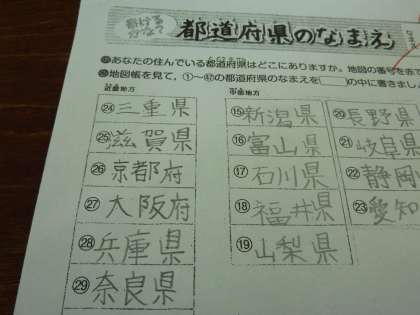 書ける
かな?
都道府県のなまえ
あなたの住んでいる都道府県はどこにありますか。地図の番号を赤で
地図帳を見て,①〜㊼の都道府県のなまえを の中に書きましょ
近畿地方
㉔三重県
㉕滋賀県
㉖京都府
㉗大阪府
㉘兵庫県
㉙奈良県
中部地方
⑮新潟県
⑯富山県
⑰石川県
⑱福井県
⑲山梨県
⑳長野県
㉑岐阜県
㉒静岡
㉓愛知